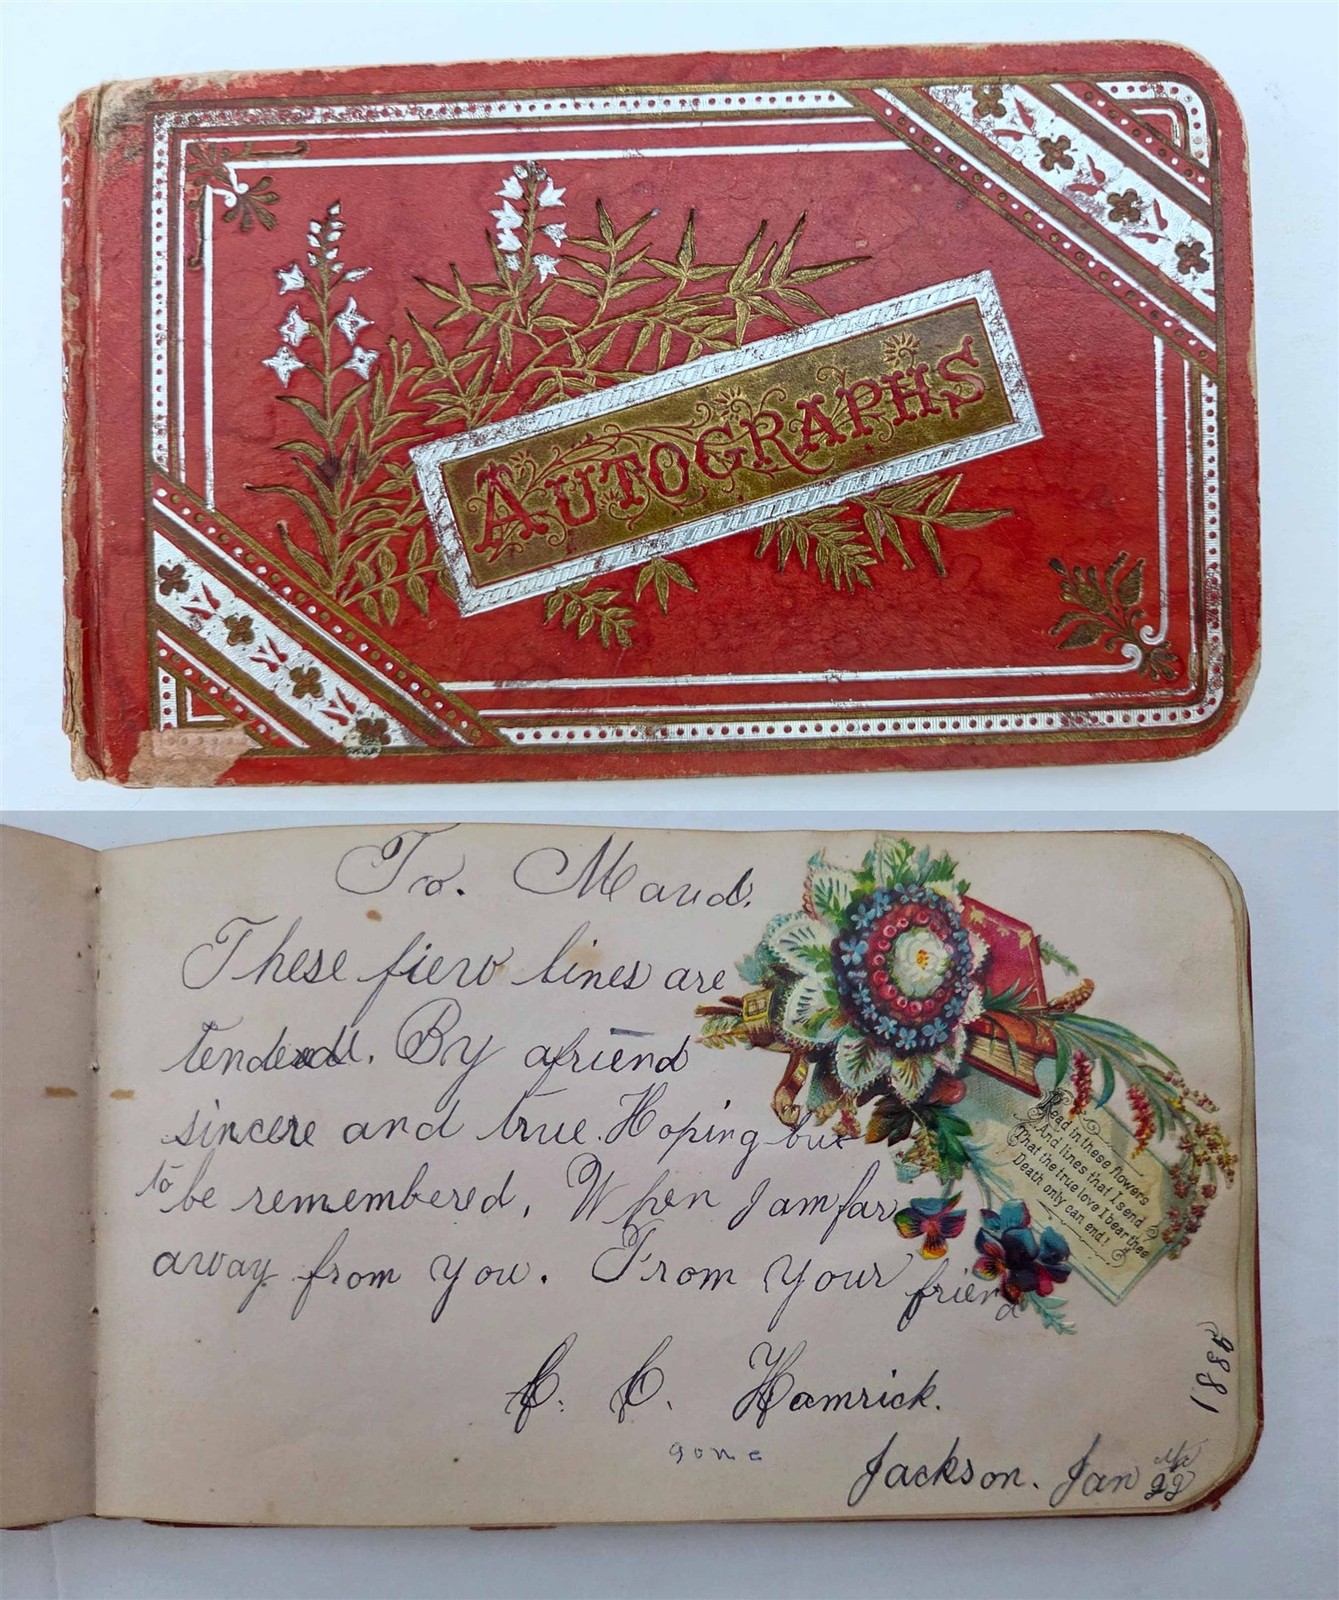 AUTOGRAPHS
To. Maud.
These fiew lines are
tendered. By a friend
sincere and true. Hoping but
to be remembered. When I am far
away from you. From your friend
C. C. Hamrick.
gone
Jackson. Jan 22
1885
Read in these flowers
And lines that I send
That the true love I bear thee
Death only can end!